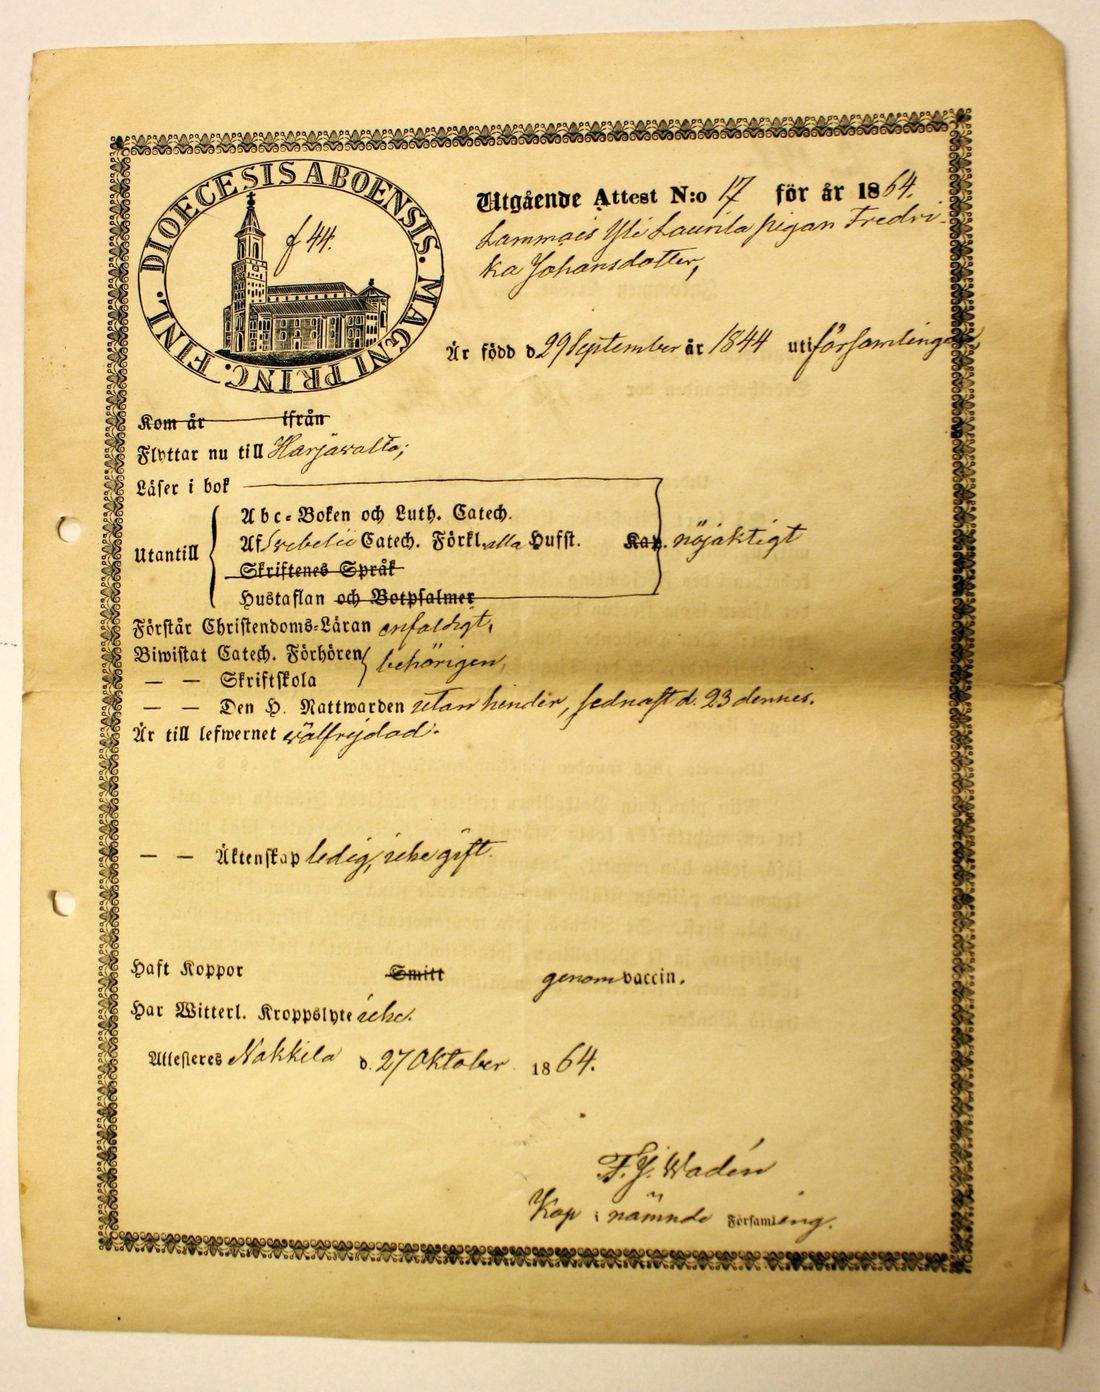 DIOECESIS ABOENSIS. MAGNI PRINC. FINL.
f 44.
Utgående Attest N:o 17 för år 1864.
Lammais Yli Laurila pigan Fredri-
ka Johansdotter,
Är född d 29 September år 1844 uti församlingen
Kom år ifrån
Flyttar nu till Harjawalta;
Läser i bok
Utantill
Abc-Boken och Luth. Catech.
Af Svebelii Catech. Förkl. alla Hufst. Kap. nöjaktigt
Skriftenes Språk
Hustaflan och Botpsalmer
Förstår Christendoms-Läran enfaldigt,
Biwistat Catech. Förhören behörigen,
— — Skriftskola
— — Den H. Nattwarden utan hinder, sednast d. 23 dennes.
Är till lefwernet wälfrejdad.
— — Äktenskap ledig, icke gift.
Haft Koppor Smitt genom vaccin.
Har Witterl. Kroppslyte icke.
Attesteres Nakkila d. 27 Oktober 1864.
F. J. Wadén
Kap i nämnde Församling.